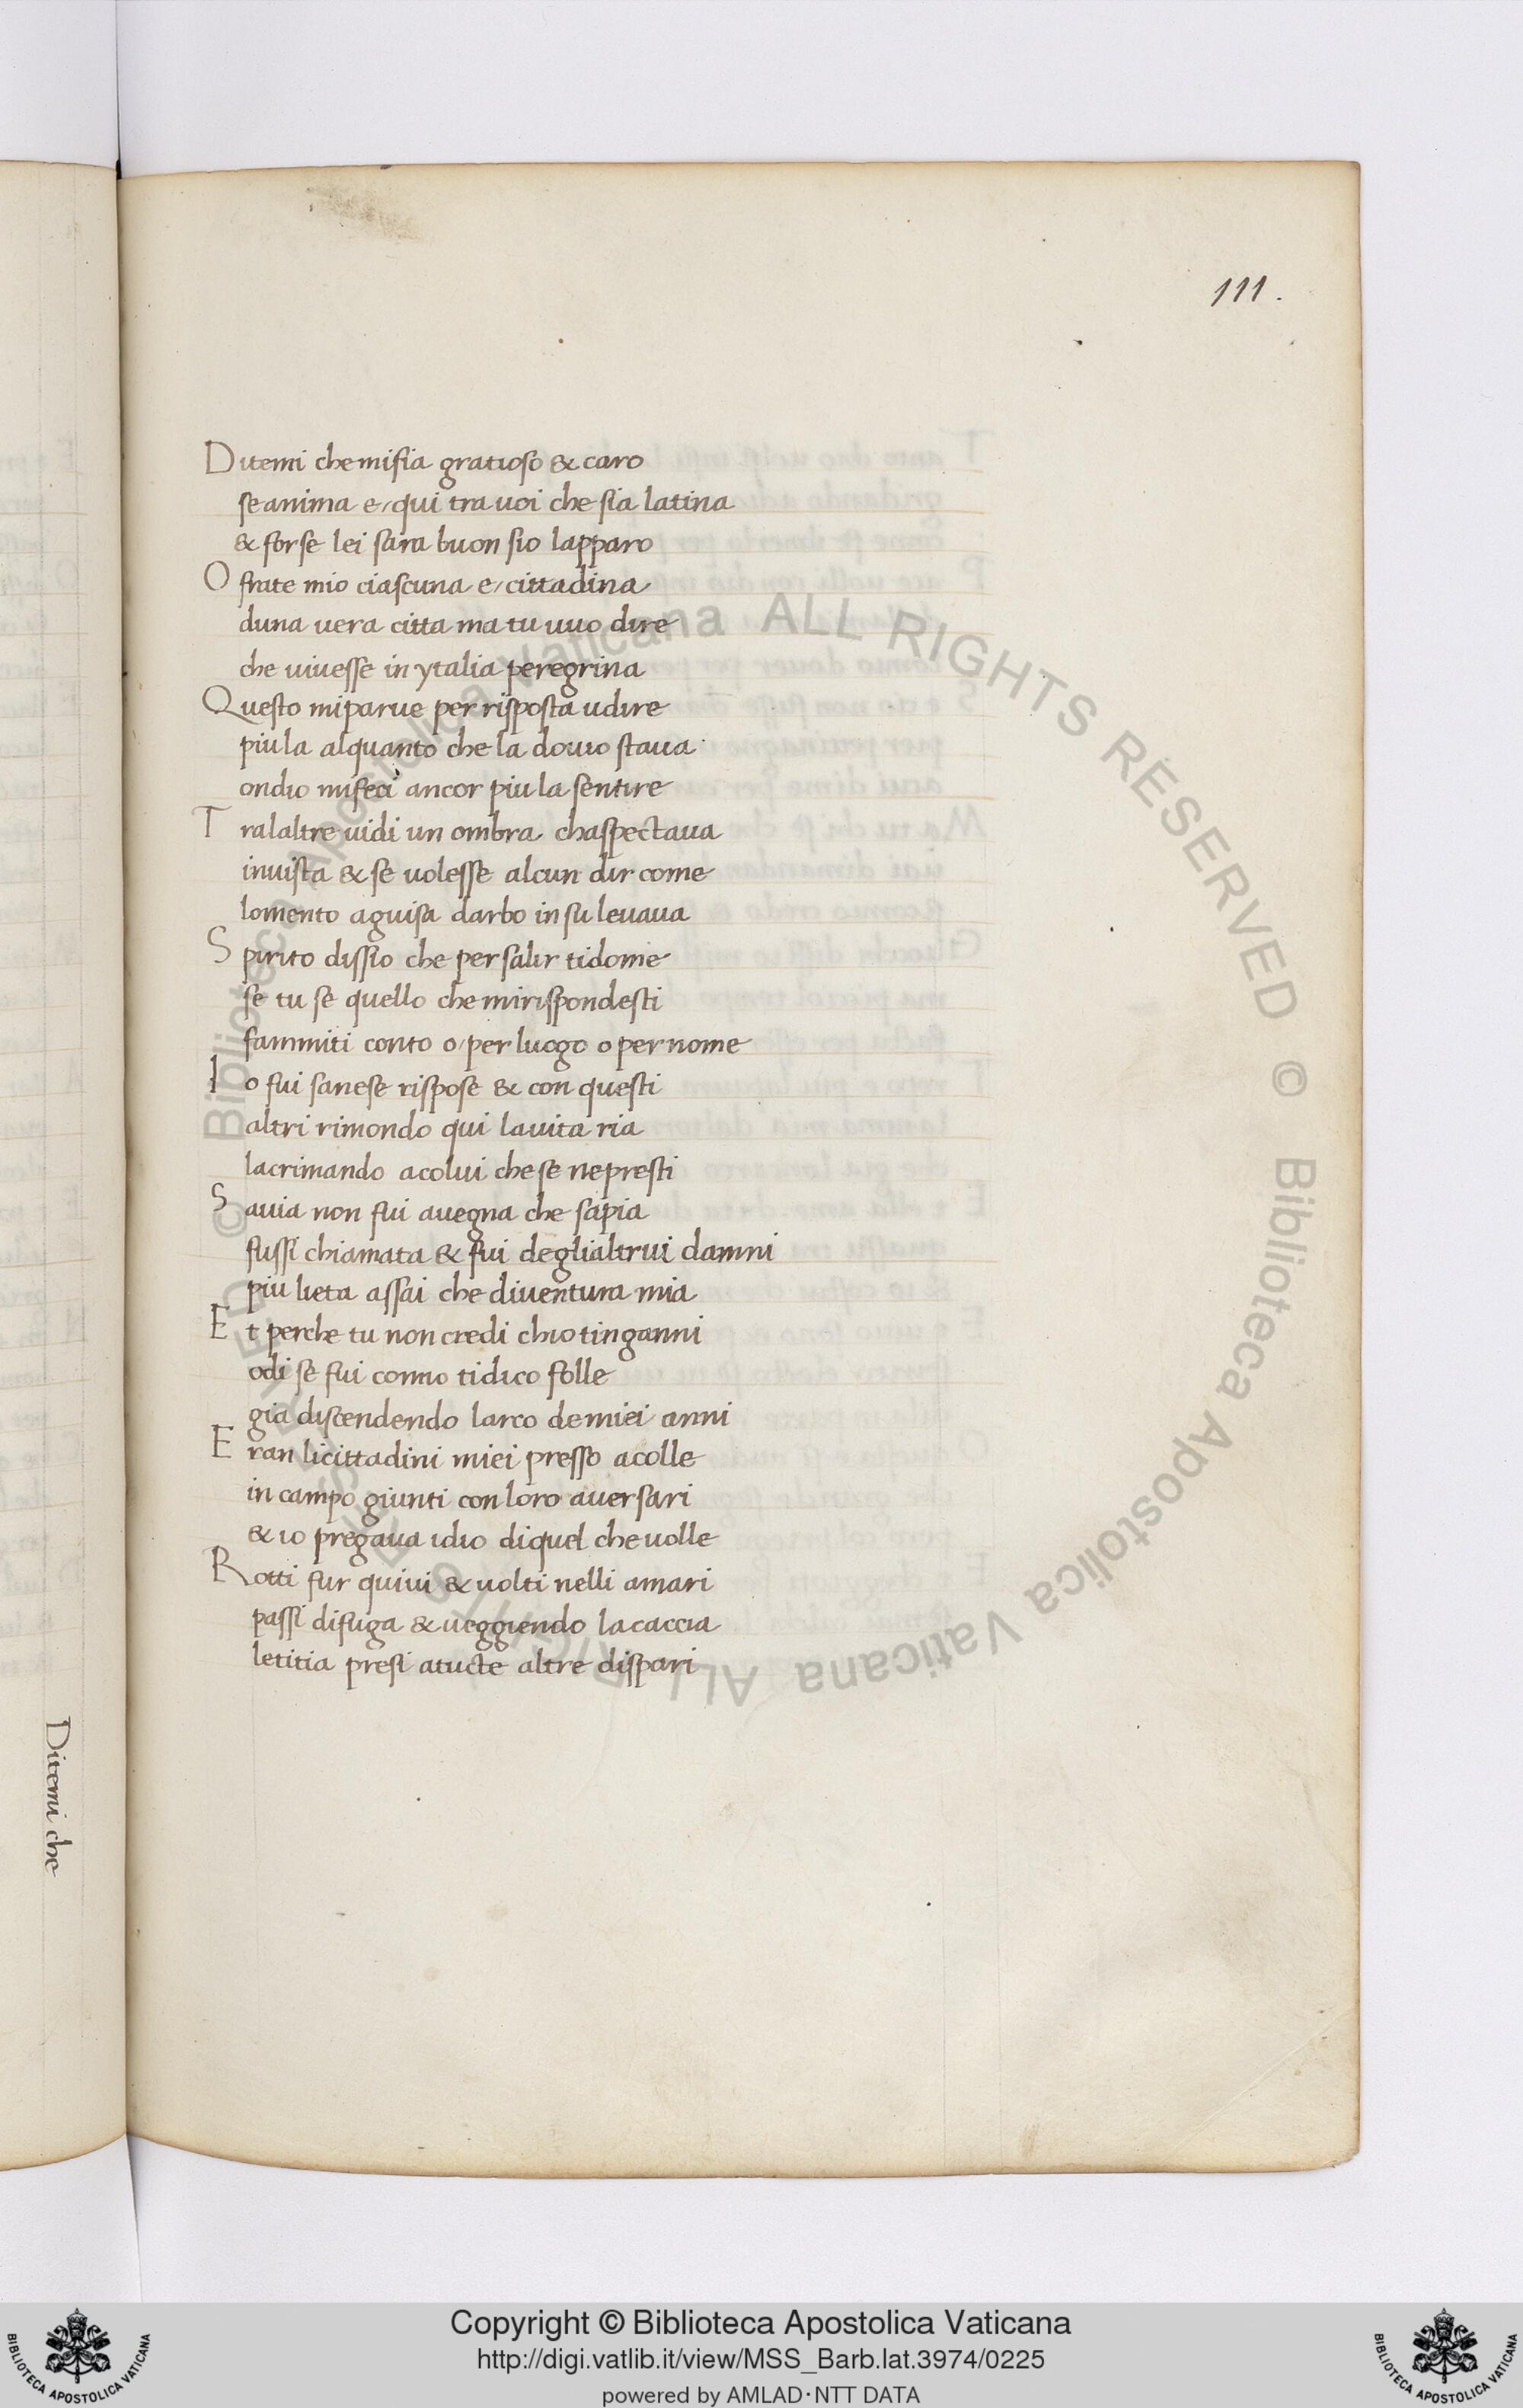 111.
Ditemi che misia gratioso & caro
se anima e/ qui tra uoi che sia latina
& forse lei sara buon sio lapparo
O frate mio ciascuna e/ cittadina
duna uera citta ma tu uuo dire
che uiuesse in ytalia peregrina
Questo miparue per risposta udire
piu la alquanto che la douio staua
ondio mifeci ancor piu la sentire
Tralaltre uidi un ombra chaspectaua
inuista & se uolesse alcun dir come
lomento aguisa darbo in su leuaua
Spirito dissio che per salir tidome
se tu se quello che mirispondesti
fammiti conto o/ per luogo o per nome
Io fui sanese rispose & con questi
altri rimondo qui lauita ria
lacrimando acolui che se nepresti
Sauia non fui auegna che sapia
fussi chiamata & fui deglialtrui damni
piu lieta assai che diuentura mia
Et perche tu non credi chio tinganni
odi se fui comio tidico folle
gia discendendo larco demiei anni
Eran licittadini miei presso acolle
in campo giunti con loro auersari
& io pregaua idio diquel che uolle
Rotti fur quiui & uolti nelli amari
passi difuga & ueggiendo la caccia
letitia presi atucte altre dispari
Ditemi che
© Biblioteca Apostolica Vaticana ALL RIGHTS RESERVED © Biblioteca Apostolica Vaticana ALL RIGHTS RESERVED
Copyright © Biblioteca Apostolica Vaticana
http://digi.vatlib.it/view/MSS_Barb.lat.3974/0225
powered by AMLAD·NTT DATA
BIBLIOTECA APOSTOLICA VATICANA
BIBLIOTECA APOSTOLICA VATICANA